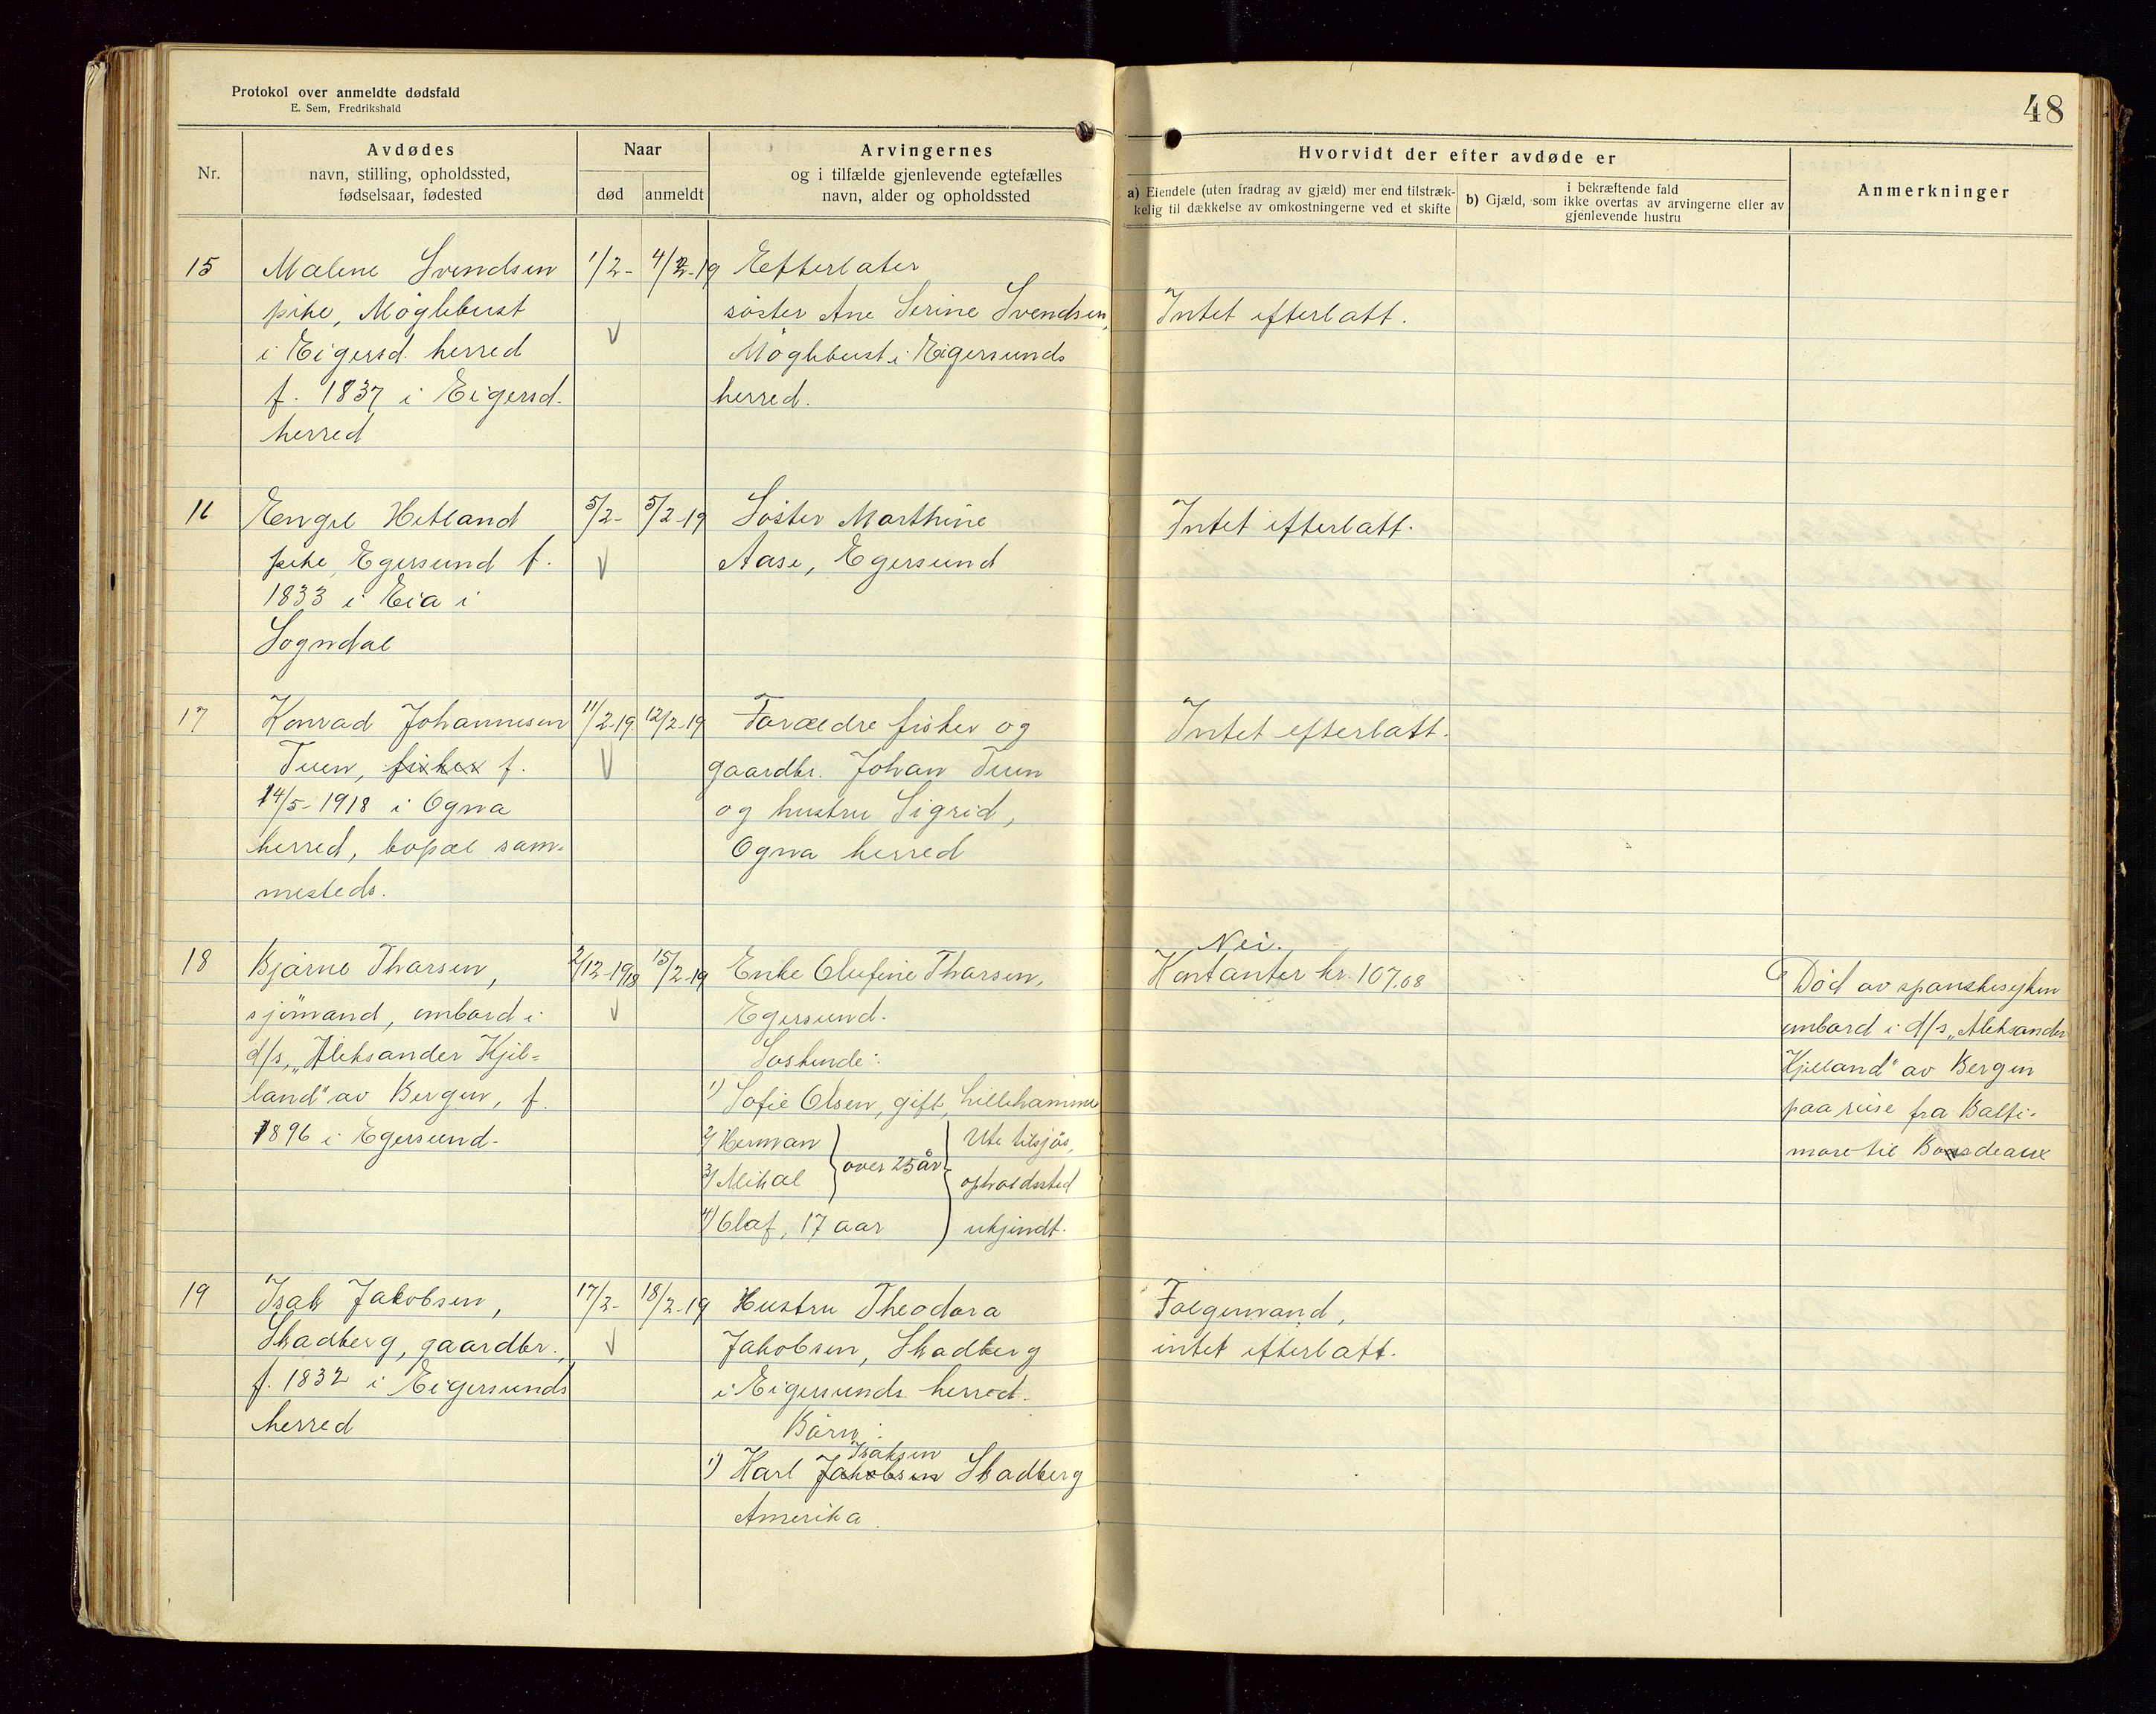 Protokol over anmeldte dødsfald
E. Sem, Fredrikshald
48
Nr.
Avdødes
navn, stilling, opholdssted,
fødselsaar, fødested
Naar
død
anmeldt
Arvingernes
og i tilfælde gjenlevende egtefælles
navn, alder og opholdssted
Hvorvidt der efter avdøde er
a) Eiendele (uten fradrag av gjæld) mer end tilstræk-
kelig til dækkelse av omkostningerne ved et skifte
i bekræftende fald
b) Gjæld, som ikke overtas av arvingerne eller av
gjenlevende hustru
Anmerkninger
15
Malene Svendsen
pike, Møglebust
i Eigersd. herred
f. 1837 i Eigersd.
herred
1/2-
4/2-19
Efterlater
søster Ane Serine Svendsen,
Møglebust i Eigersunds
herred.
Intet efterlatt.
16
Engel Hetland
pike, Egersund f.
1833 i Eia i
Sogndal
5/2-
5/2-19
Søster Marthine
Aase, Egersund
Intet efterlatt.
17
Konrad Johannesen
Tuen, fisker f.
14/5-1918 i Ogna
herred, bopæl sam-
mesteds.
11/2-19.
12/2-19
Forældre fisker og
gaardbr. Johan Tuen
og hustru Sigrid,
Ogna herred
Intet efterlatt.
18
Bjarne Tharsen,
sjømand, ombord i
d/s „Aleksander Kjel-
land" av Bergen, f.
1896 i Egersund.
2/12-1918
15/2-19
Enke Olufine Tharsen,
Egersund.
Søskende:
1) Sofie Olsen, gift, Lillehammer
2) Herman
3) Mikal
over 25 år
4) Olaf, 17 aar
Ute tilsjøs,
opholdssted
ukjendt.
Nei.
Kontanter kr. 107.08
Død av spanskesyken
ombord i d/s „Aleksander
Kjelland" av Bergen
paa reise fra Balti-
more til Bordeaux
19
Isak Jakobsen,
Skadberg, gaardbr.,
f. 1832 i Eigersunds
herred
17/2-
18/2-19
Hustru Theodora
Jakobsen, Skadberg
i Eigersunds herred.
Børn:
Isaksen
1) Karl Jakobsen Skadberg
Amerika.
Følgemand,
intet efterlatt.